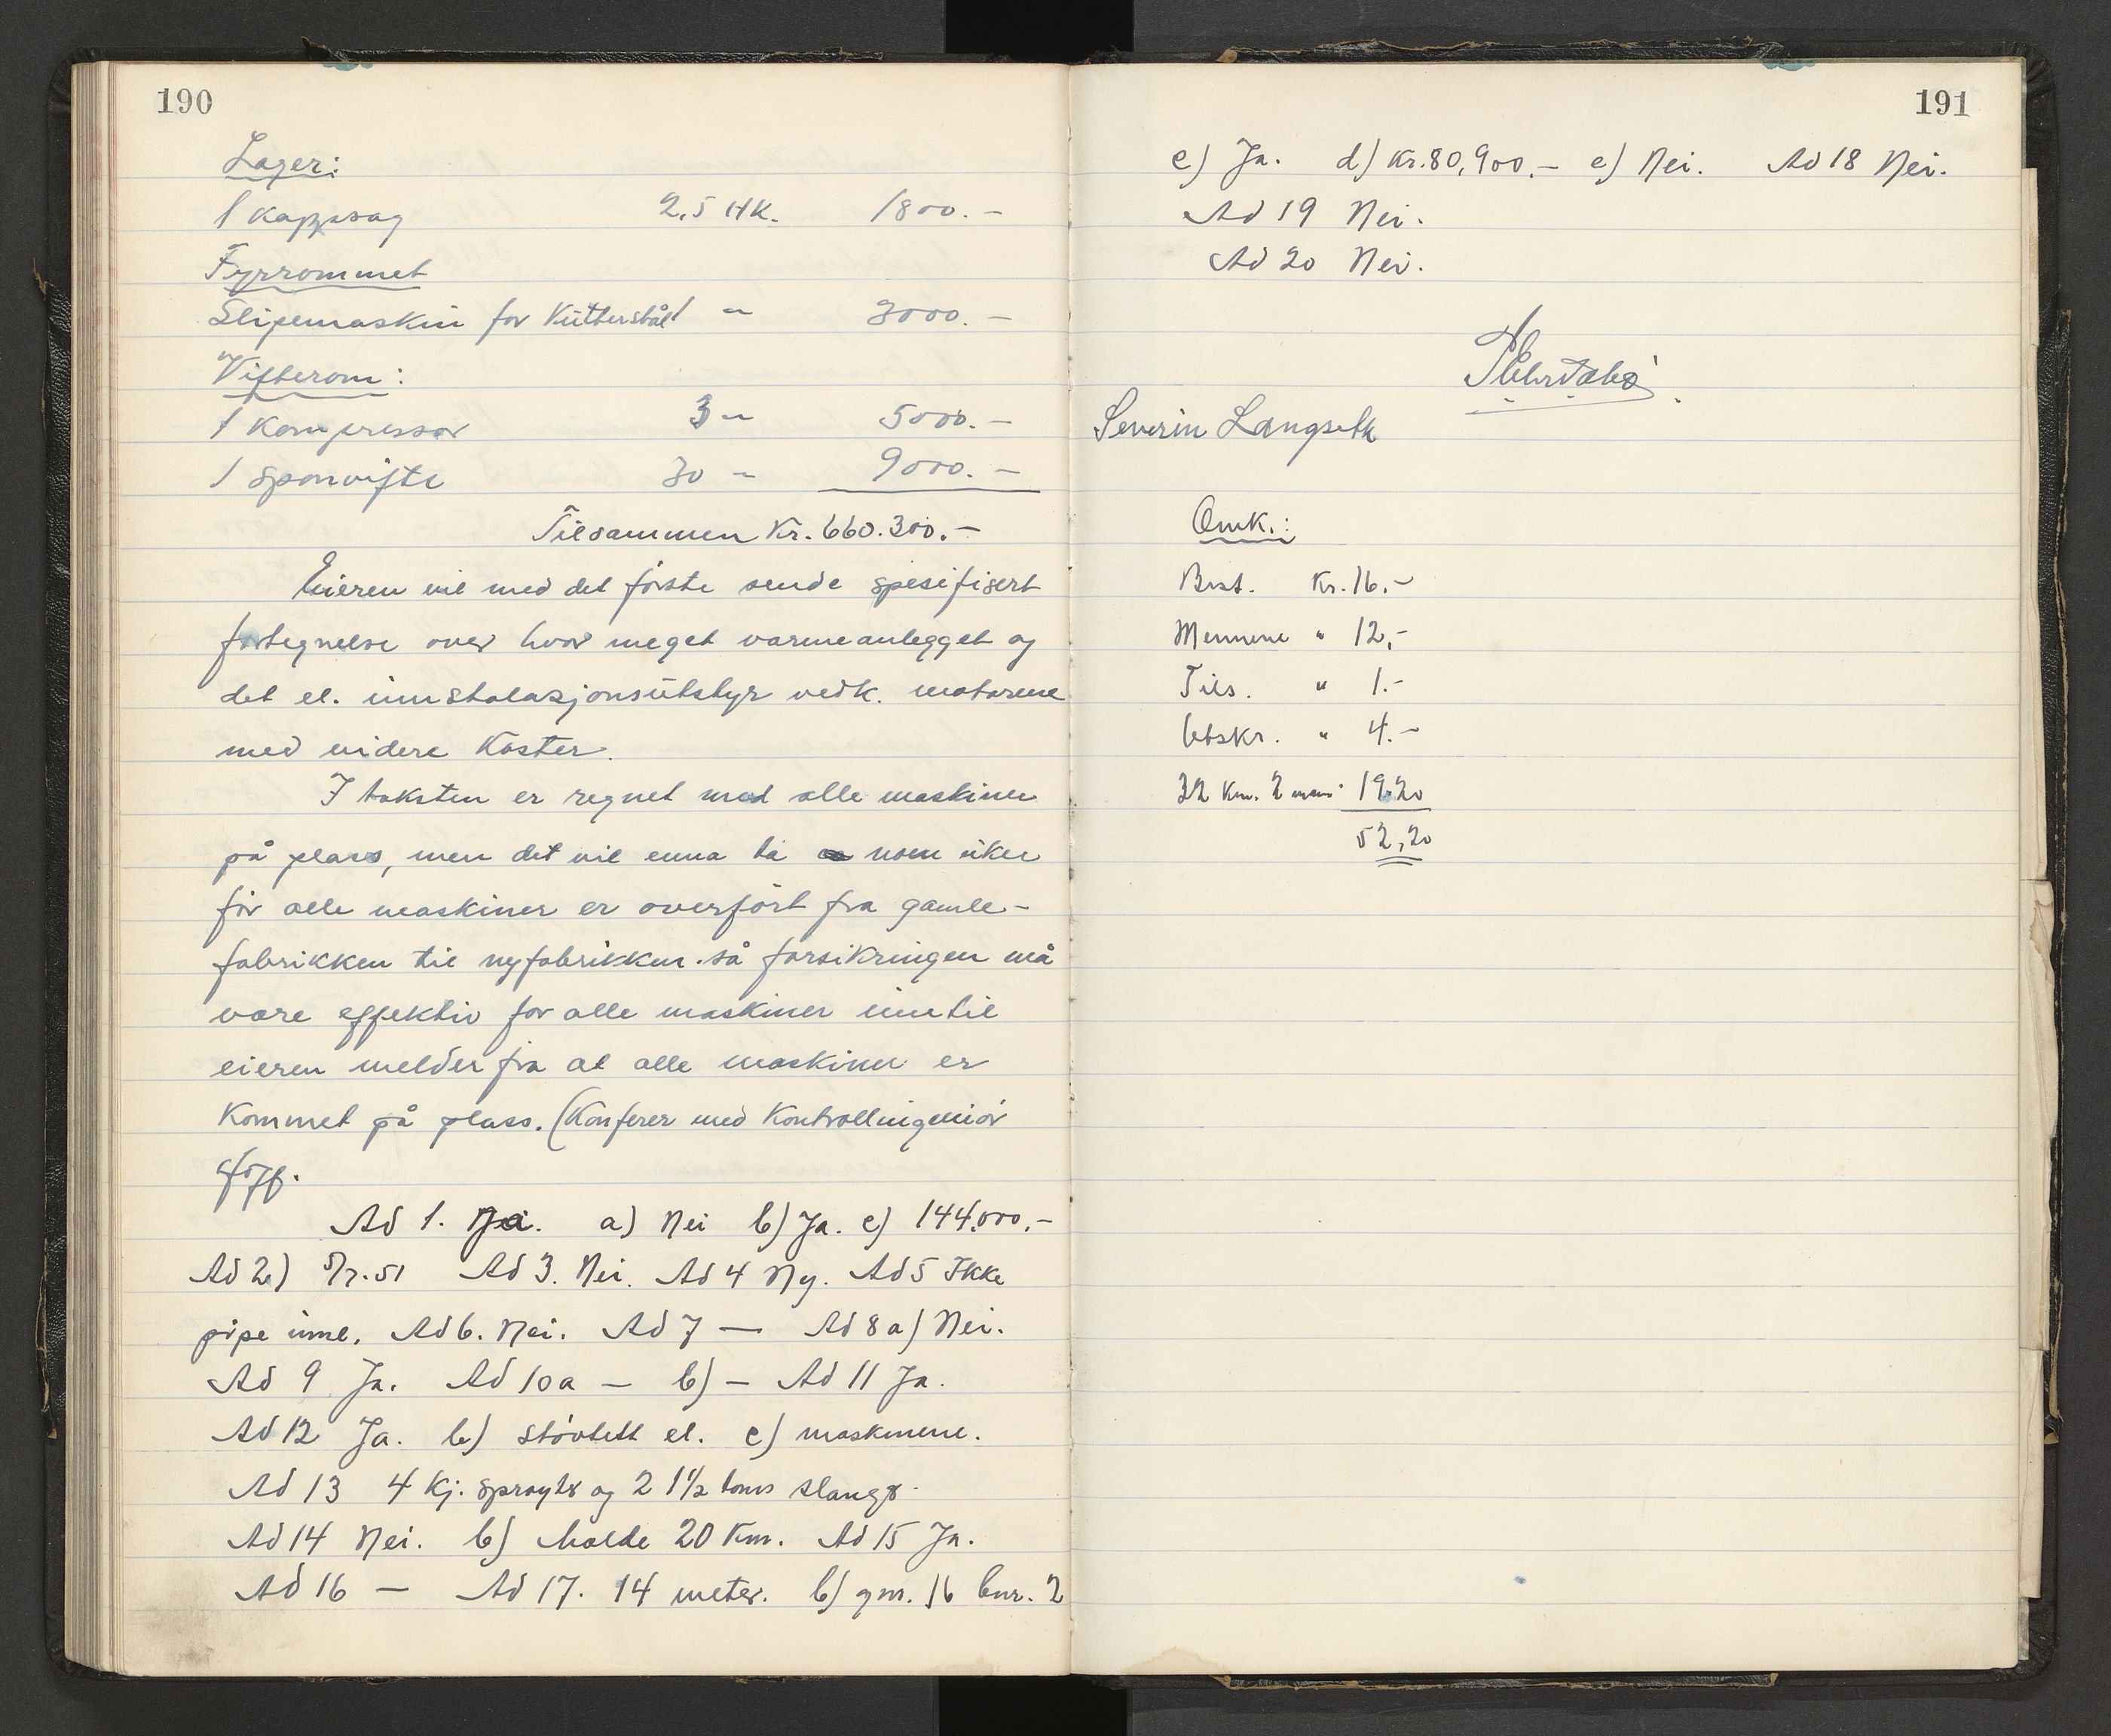 190
Lager:
1 Kappsag 2,5 HK. 1800.-
Fyrrommet
Slipemaskin for Kutterstål - " - 3000.-
Vifterom:
1 Kompressor 3 " 5000.-
1 Sponvifte 30 " 9000.-
Tilsammen Kr. 660.300.-
Eieren vil med det første sende spesifisert
fortegnelse over hvor meget varmeanlegget og
det el. innstalasjonsutstyr vedk. motorene
med videre Koster.
I taksten er regnet med alle maskiner
på plass, men det vil enna ta noen uker
før alle maskiner er overført fra gamle-
fabrikken til nyfabrikken. så forsikringen må
være effektiv for alle maskiner inntil
eieren melder fra at alle maskiner er
Kommet på plass. (Konferer med Kontrollingeniør
Ad 1. a) Nei b) Ja. c) 144.000.-
Ad 2) 5/7.51 Ad 3. Nei. Ad 4 Ny. Ad 5 Ikke
pipe inne. Ad 6. Nei. Ad 7 — Ad 8 a) Nei.
Ad 9 Ja. Ad 10a — b) — Ad 11 Ja.
Ad 12 Ja. b) støvtett el. c) maskinene.
Ad 13 4 Kj. sprøyter og 2 1 1/2 toms slanger.
Ad 14 Nei. b) Molde 20 Km. Ad 15 Ja.
Ad 16 — Ad 17. 14 meter. b) gnr. 16 bnr. 2
191
c) Ja. d) Kr. 80,900.- e) Nei. Ad 18 Nei.
Ad 19 Nei.
Ad 20 Nei.
Severin Langseth
Omk.:
Best. Kr. 16.-
Mennene " 12,-
Tils. " 1.-
Utskr. " 4.-
32 Km. 2 19.20
52,20